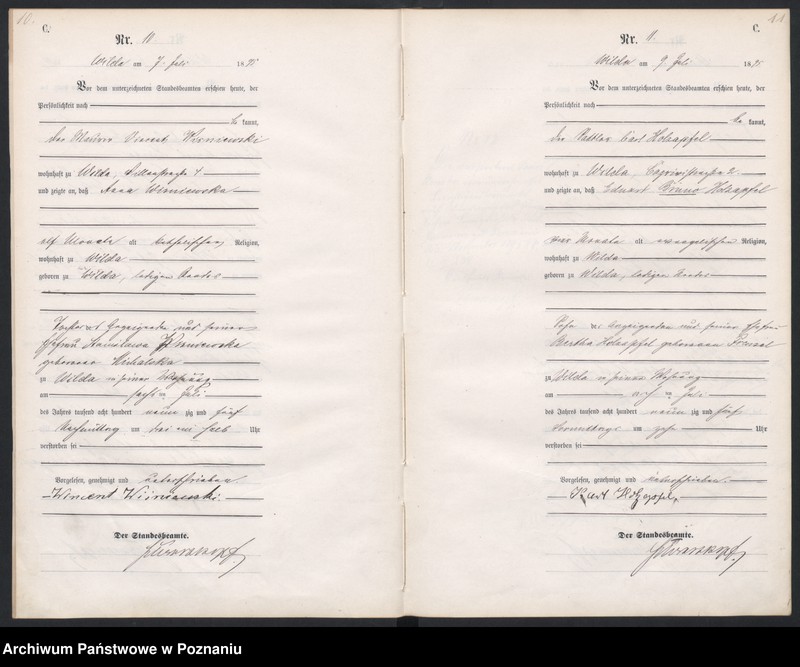 10.
C.
Nr. 11
Wilda am 7. Juli 1895
Vor dem unterzeichneten Standesbeamten erschien heute, der
Persönlichkeit nach
kannt,
der Vincent Wisniewski
wohnhaft zu Wilda,
und zeigte an, daß Anna Wisniewska
elf Monate alt katholischer Religion,
wohnhaft zu Wilda
geboren zu Wilda, ledigen Standes
Tochter des Anzeigenden und seiner
Ehefrau Stanislawa Wisniewska
geborenen
zu Wilda in seiner Wohnung
am Juli
des Jahres tausend acht hundert neun zig und fünf
Nachmittag um drei ein halb Uhr
verstorben sei
Vorgelesen, genehmigt und unterschrieben.
Wincent Wiśniewski.
Der Standesbeamte.
11
C.
Nr.
Wilda am 9. Juli 1895
Vor dem unterzeichneten Standesbeamten erschien heute, der
Persönlichkeit nach
be kannt,
der Carl Holzapfel
wohnhaft zu Wilda, 2.
und zeigte an, daß Eduard Bruno Holzapfel
Monate alt evangelischer Religion,
wohnhaft zu Wilda
geboren zu Wilda, ledigen Standes
Sohn des Anzeigenden und seiner Ehefrau
Bertha Holzapfel geborenen
zu Wilda in seiner Wohnung
am Juli
des Jahres tausend acht hundert neun zig und fünf
Vormittags um Uhr
verstorben sei
Vorgelesen, genehmigt und unterschrieben.
Holzapfel.
Der Standesbeamte.
Archiwum Państwowe w Poznaniu